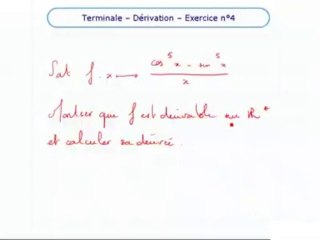 Terminale – Dérivation – Exercice n°4
Soit f : x ⟼ (cos⁵x - sin⁵x) / x
Montrer que f est dérivable sur ℝ*
et calculer sa dérivée.